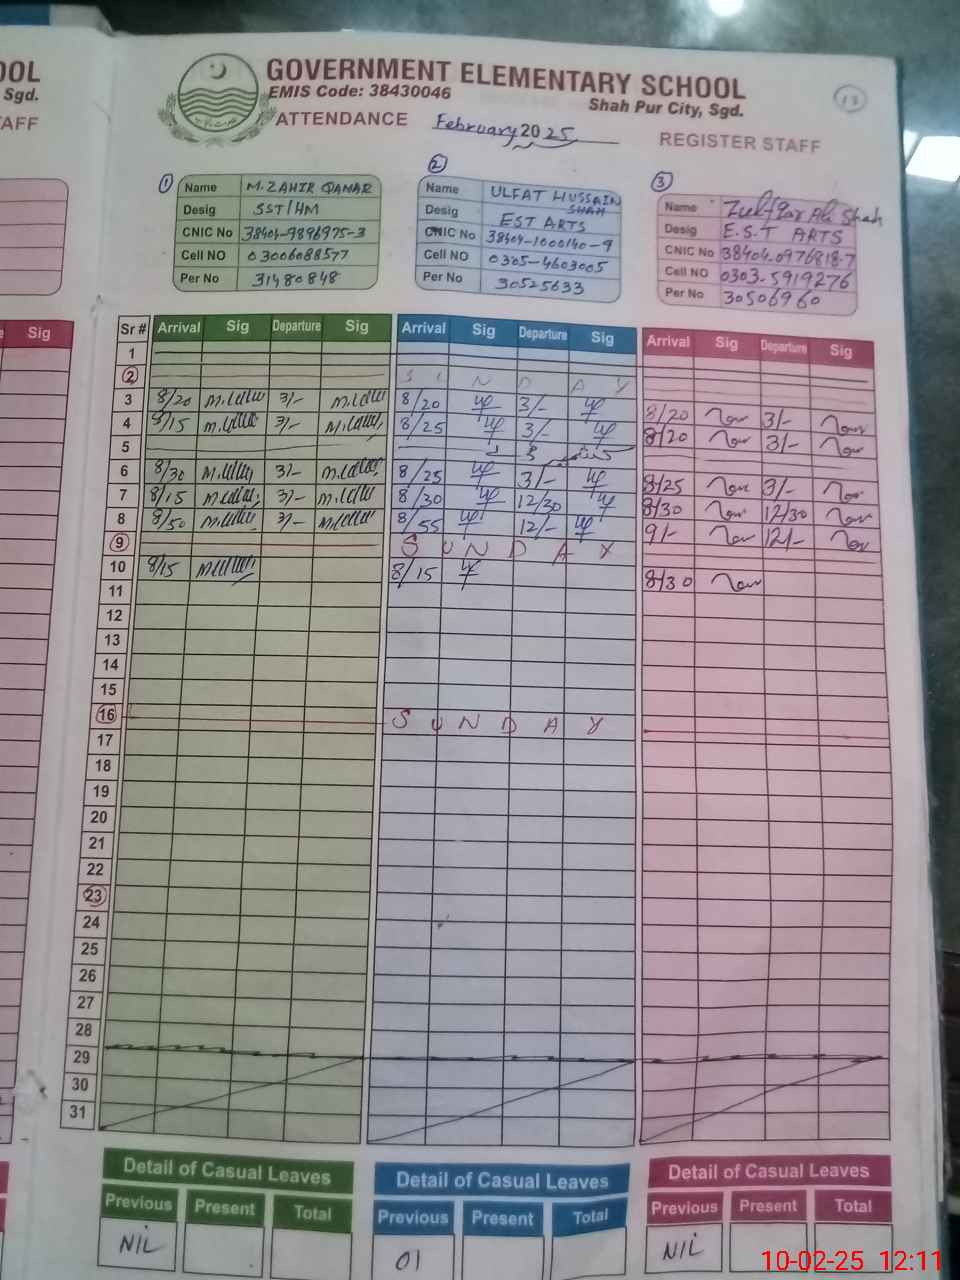 OOL
Sgd.
AFF
Sig
GOVERNMENT ELEMENTARY SCHOOL
EMIS Code: 38430046
Shah Pur City, Sgd.
13
ATTENDANCE February 2025 REGISTER STAFF
1
Name M. ZAHIR QAMAR
Desig SST/HM
CNIC No 38404-9896975-3
Cell NO 03006088577
Per No 31480848
2
Name ULFAT HUSSAIN SHAH
Desig EST ARTS
CNIC No 38404-1000140-9
Cell NO 0305-4603005
Per No 30525633
3
Name Zulfiqar Ali Shah
Desig E.S.T ARTS
CNIC No 38404.0976818-7
Cell NO 0303-5919276
Per No 30506960
Sr # Arrival Sig Departure Sig Arrival Sig Departure Sig Arrival Sig Departure Sig
1
2 S U N D A Y
3 8/20 3/- 8/20 3/- 8/20 3/-
4 8/15 3/- 8/25 3/- 8/20 3/-
5
6 8/30 3/- 8/25 3/- 8/25 3/-
7 8/15 3/- 8/30 12/30 8/30 12/30
8 8/50 3/- 8/55 12/- 9/- 12/-
9 S U N D A Y
10 8/15 8/15 8/30
11
12
13
14
15
16 S U N D A Y
17
18
19
20
21
22
23
24
25
26
27
28
29
30
31
Detail of Casual Leaves Detail of Casual Leaves Detail of Casual Leaves
Previous Present Total Previous Present Total Previous Present Total
NIL 01 NIL
10-02-25 12:11